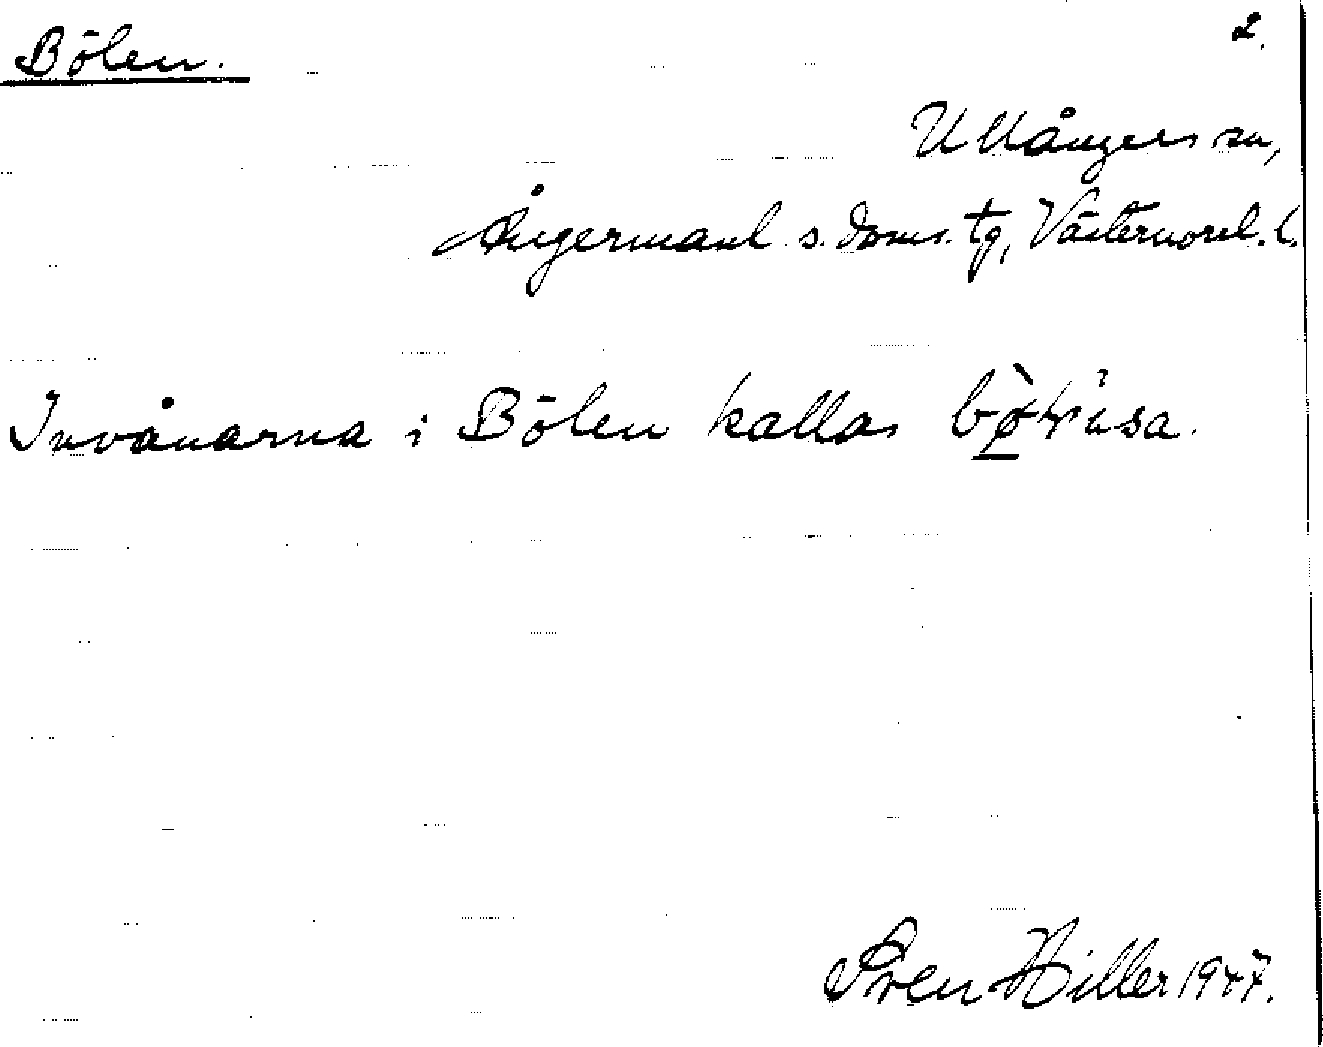 Bölen. 2.
Ullångers sn,
Ångermanl. s. doms. tg, Västernorrl. l.
Invånarna i Bölen kallas
Sven Hiller 1947.